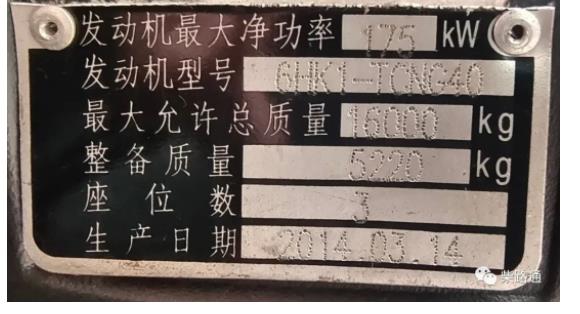 发动机最大净功率 175 kW
发动机型号 6HK1-TCNG40
最大允许总质量 16000 kg
整备质量 5220 kg
座位数 3
生产日期 2014.03.14
柴路通